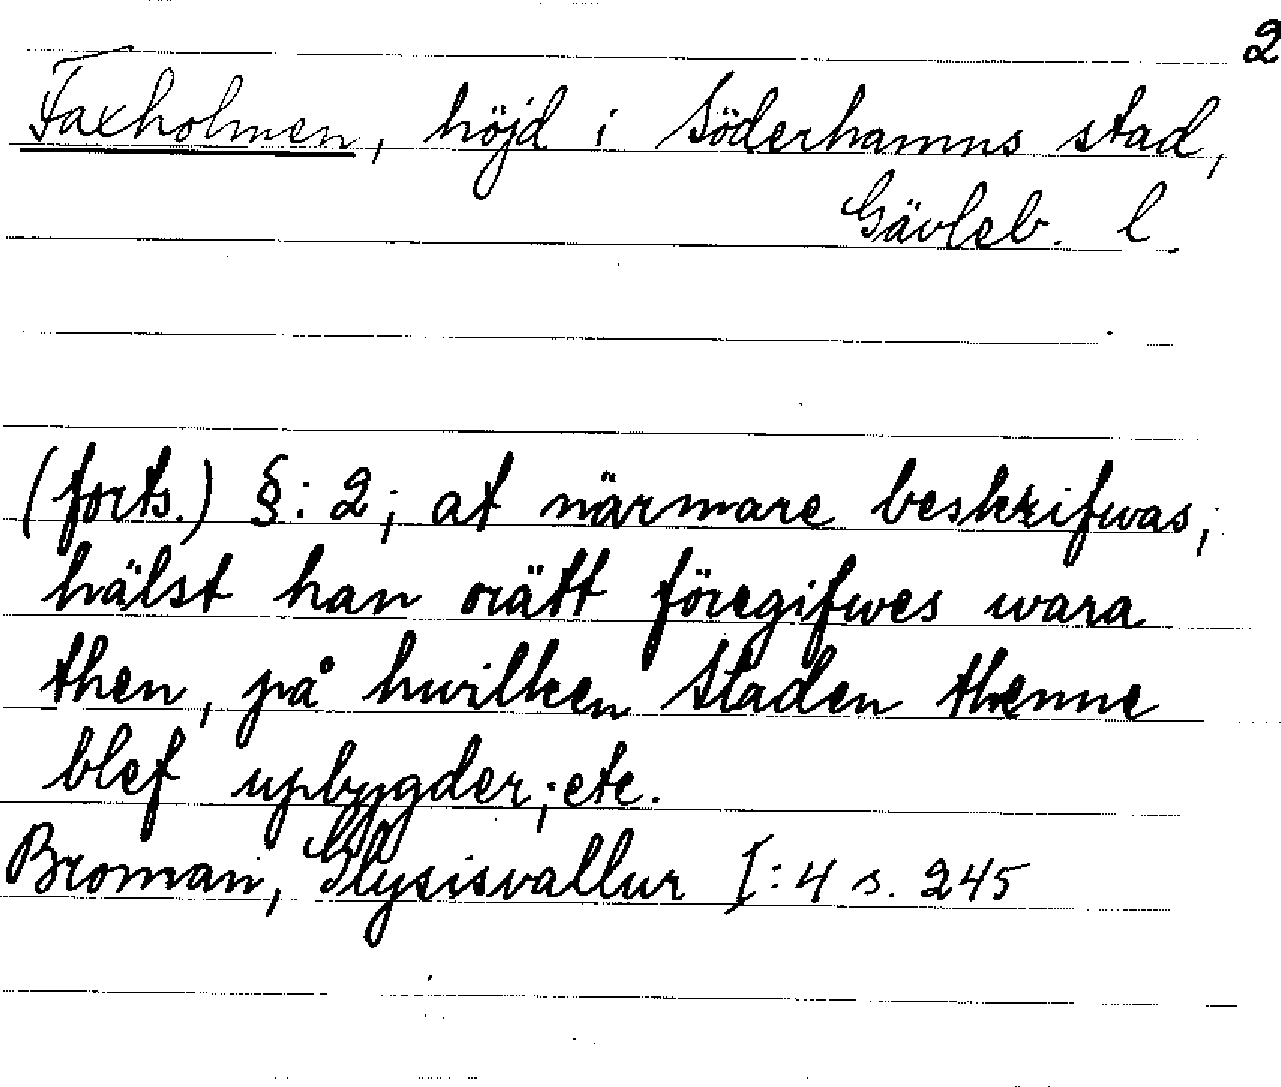 2
Faxholmen, höjd i Söderhamns stad,
Gävleb. l.
(forts.) §: 2; at närmare beskrifwas,
hälst han orätt föregifwes wara
then, på hwilken Staden thenne
blef upbygder; etc.
Broman, Glysisvallur I:4 s. 245